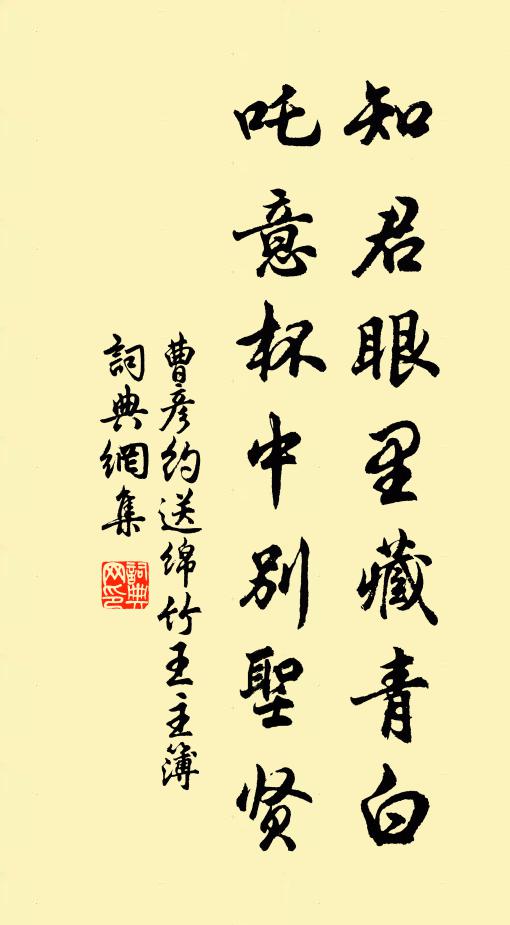 知君眼里藏青白
吒意杯中別聖贤
曹彦约送绵竹王主簿
詞典網集
詞典网印